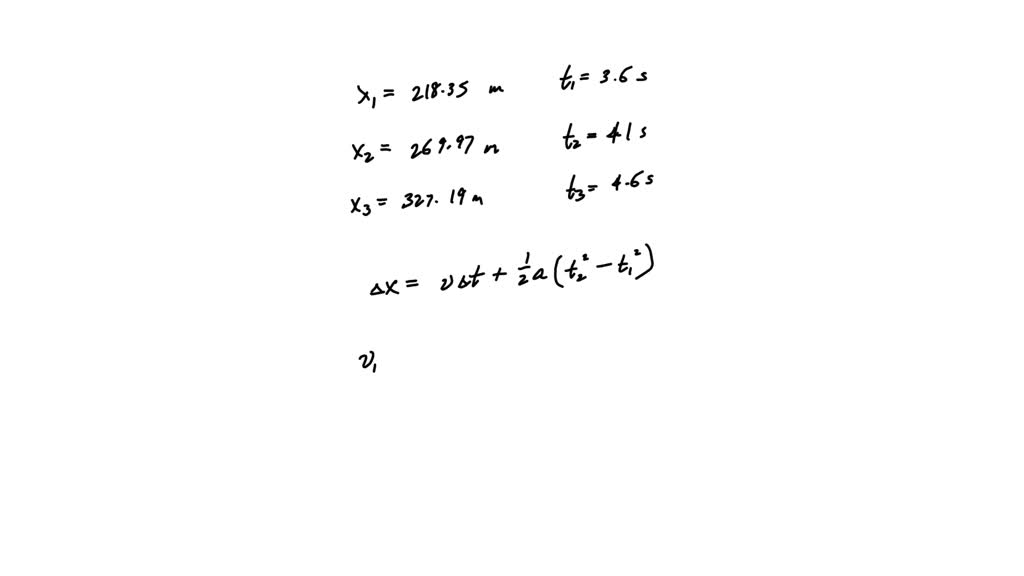 x₁ = 218.35 m t₁ = 3.6 s
x₂ = 269.97 m t₂ = 41 s
x₃ = 327.19 m t₃ = 4.6 s
Δx = vΔt + 1/2 a (t₂² − t₁²)
v₁